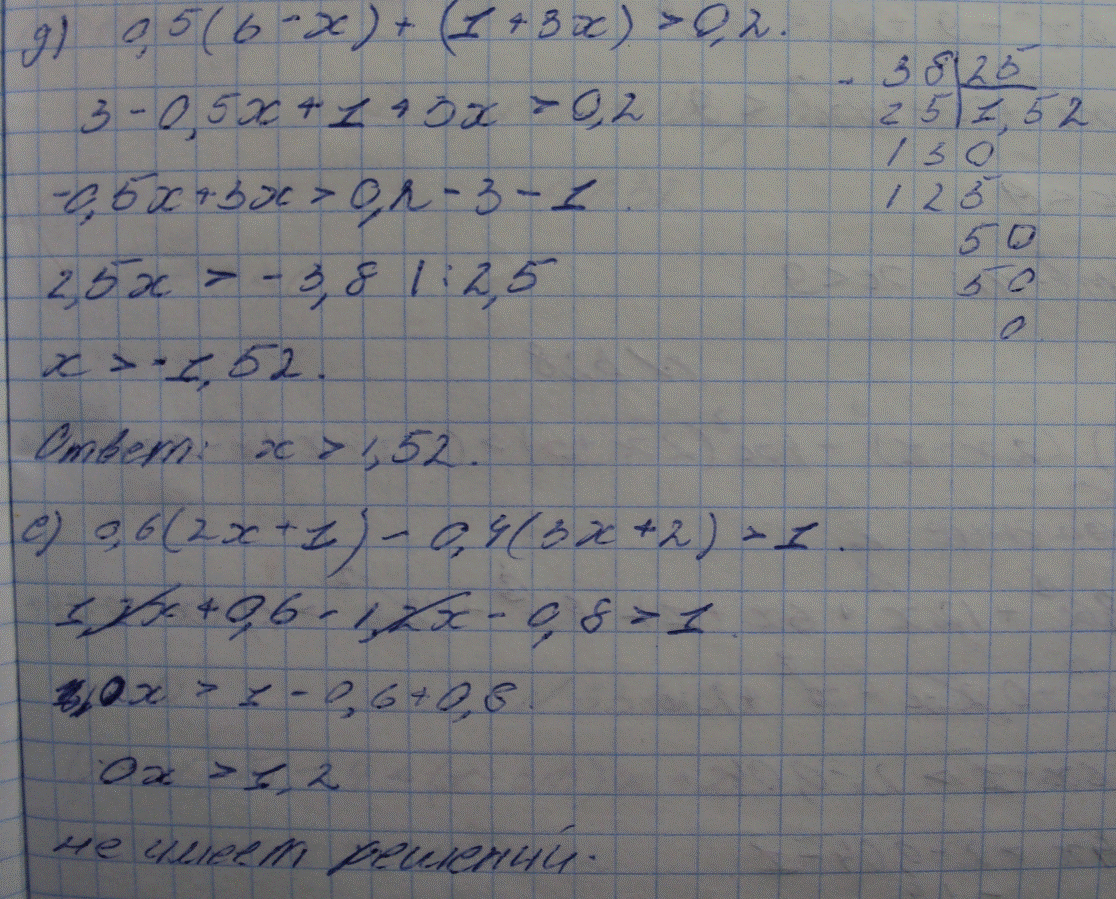 д) 0,5(6-x)+(1+3x)>0,2.
3-0,5x+1+3x>0,2
-0,5x+3x>0,2-3-1.
2,5x>-3,8 |:2,5
x>-1,52.
Ответ: x>1,52.
- 38|25
25|1,52
130
125
50
50
0
е) 0,6(2x+1)-0,4(3x+2)>1.
1,2x+0,6-1,2x-0,8>1.
0x>1-0,6+0,8.
0x>1,2
не имеет решений.